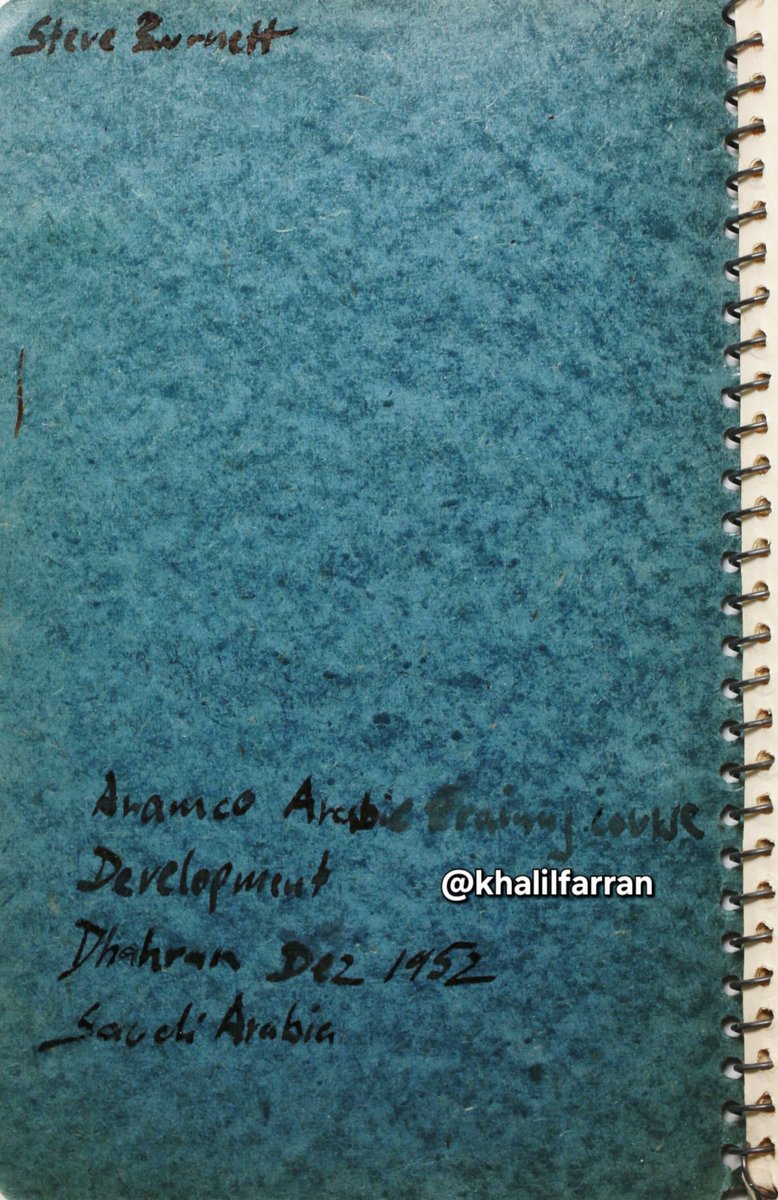 Steve Burnett
Aramco Arabic training course
Development
@khalilfarran
Dhahran Dez 1952
Saudi Arabia